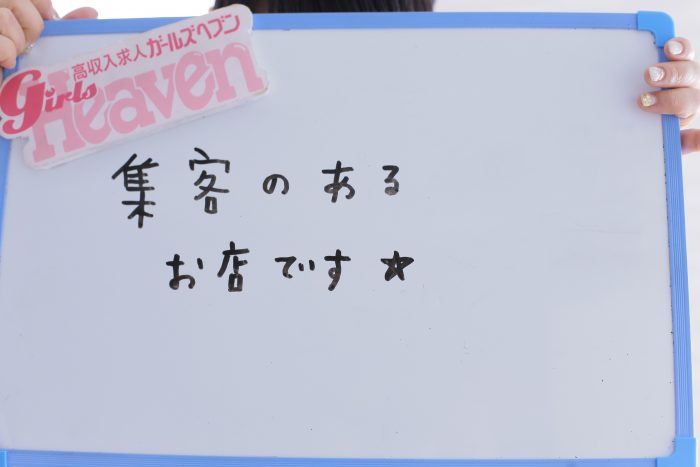 高収入求人ガールズヘブン
Girls Heaven
集客のある
お店です☆